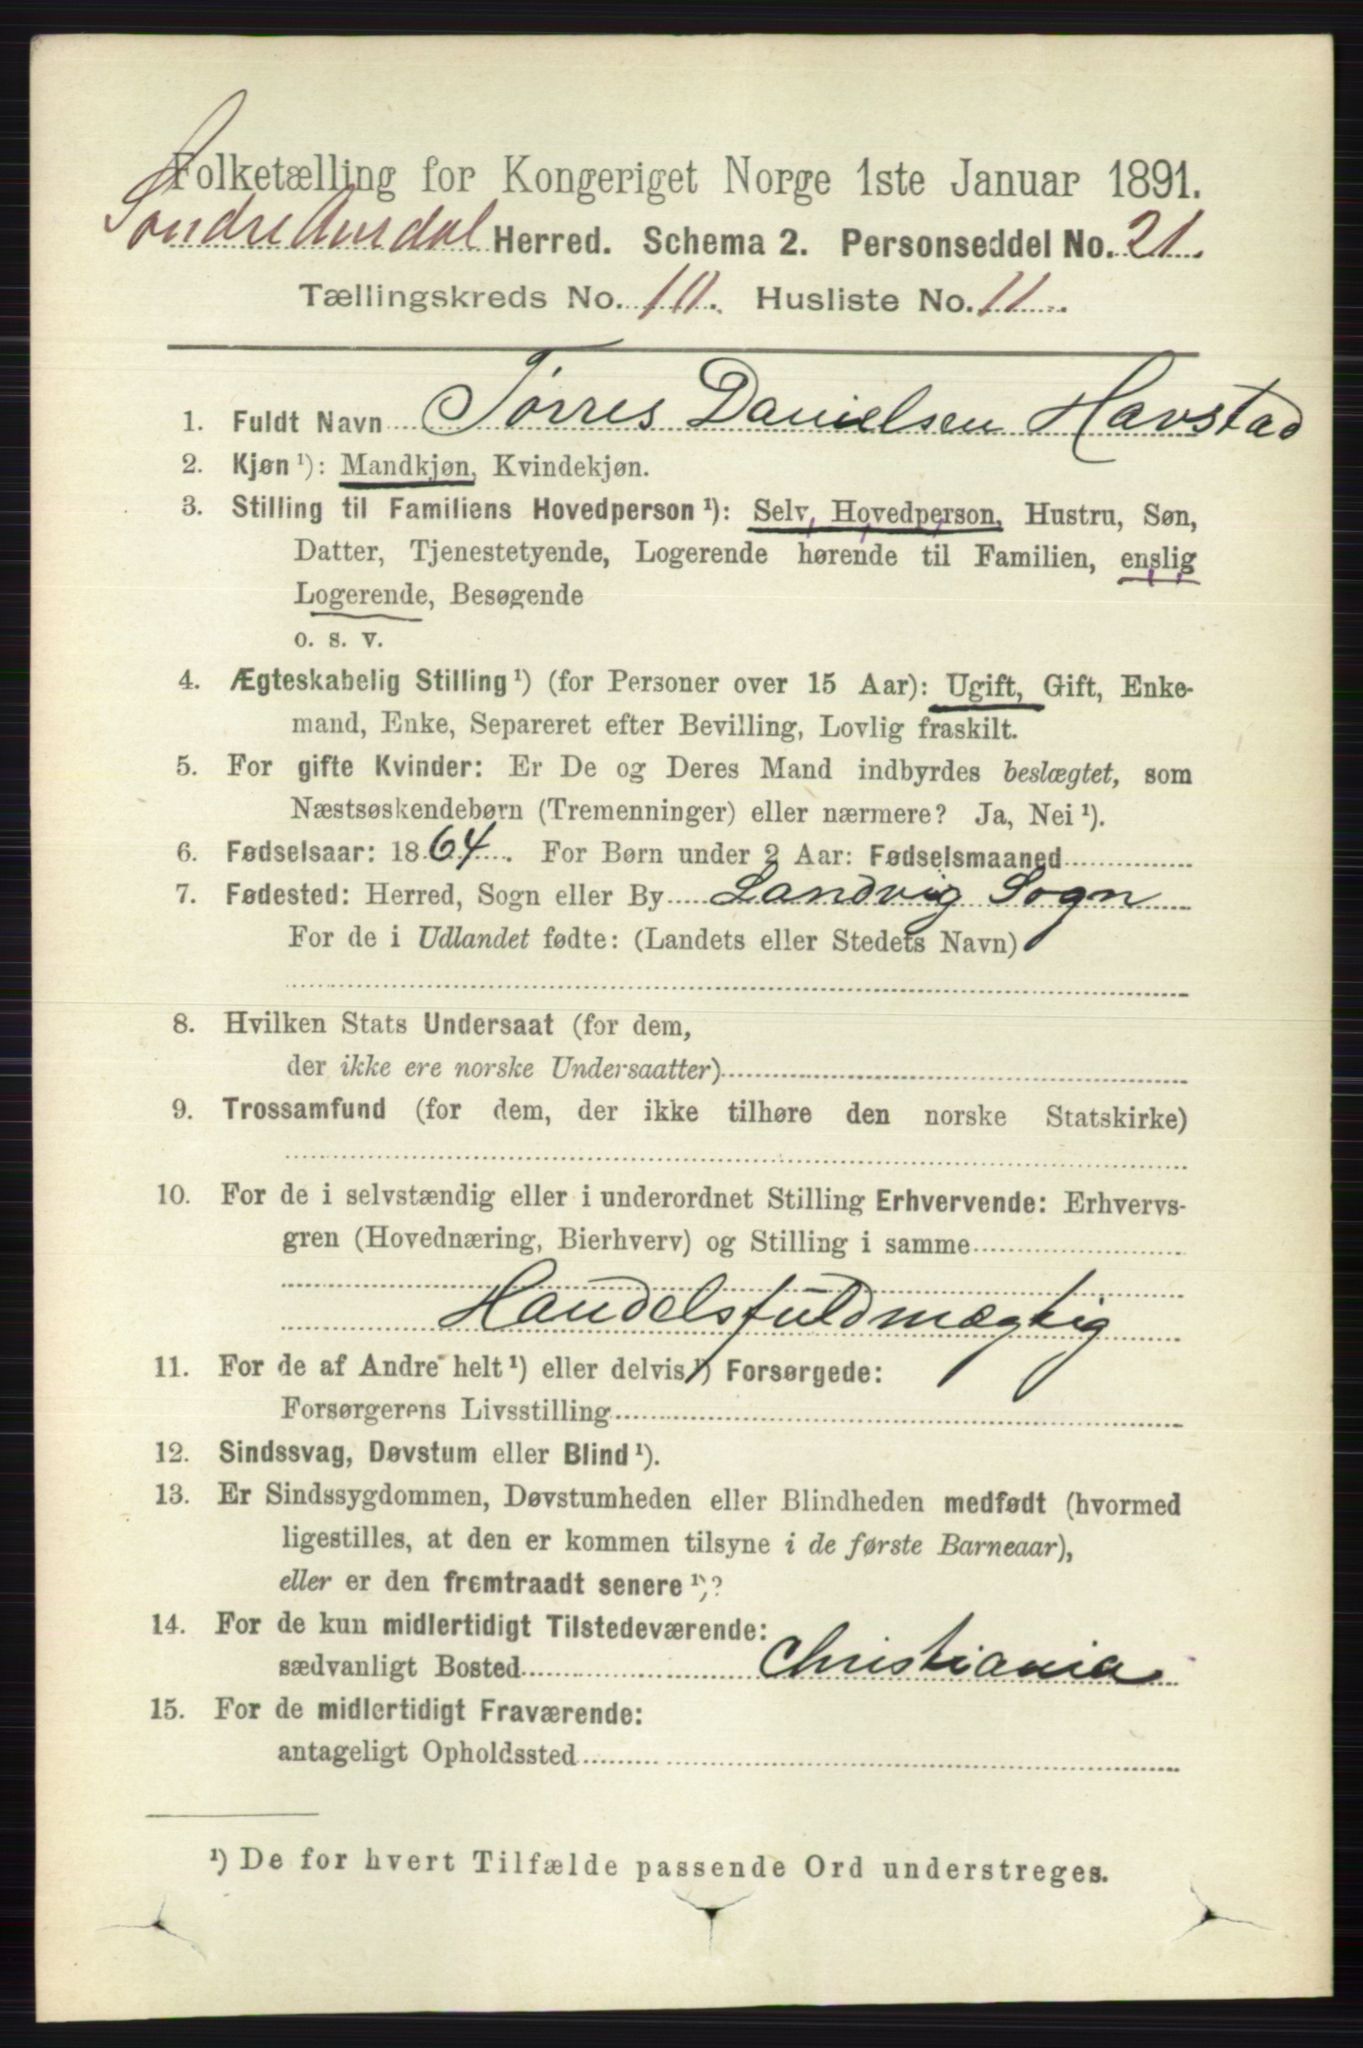 Folketælling for Kongeriget Norge 1ste Januar 1891.
Søndre Aurdal Herred. Schema 2. Personseddel No. 21.
Tællingskreds No. 10. Husliste No. 11.
1. Fuldt Navn Tørres Danielsen Havstad
2. Kjøn ¹): Mandkjøn, Kvindekjøn.
3. Stilling til Familiens Hovedperson ¹): Selv, Hovedperson, Hustru, Søn,
Datter, Tjenestetyende, Logerende hørende til Familien, enslig
Logerende, Besøgende
o. s. v.
4. Ægteskabelig Stilling ¹) (for Personer over 15 Aar): Ugift, Gift, Enke-
mand, Enke, Separeret efter Bevilling, Lovlig fraskilt.
5. For gifte Kvinder: Er De og Deres Mand indbyrdes beslægtet, som
Næstsøskendebørn (Tremenninger) eller nærmere? Ja, Nei ¹).
6. Fødselsaar: 1864. For Børn under 2 Aar: Fødselsmaaned
7. Fødested: Herred, Sogn eller By Landvig Sogn
For de i Udlandet fødte: (Landets eller Stedets Navn)
8. Hvilken Stats Undersaat (for dem,
der ikke ere norske Undersaatter)
9. Trossamfund (for dem, der ikke tilhøre den norske Statskirke)
10. For de i selvstændig eller i underordnet Stilling Erhvervende: Erhvervs-
gren (Hovednæring, Bierhverv) og Stilling i samme
Handelsfuldmægtig
11. For de af Andre helt ¹) eller delvis ¹) Forsørgede:
Forsørgerens Livsstilling
12. Sindssvag, Døvstum eller Blind ¹).
13. Er Sindssygdommen, Døvstumheden eller Blindheden medfødt (hvormed
ligestilles, at den er kommen tilsyne i de første Barneaar),
eller er den fremtraadt senere ¹)?
14. For de kun midlertidigt Tilstedeværende:
sædvanligt Bosted Christiania
15. For de midlertidigt Fraværende:
antageligt Opholdssted
¹) De for hvert Tilfælde passende Ord understreges.